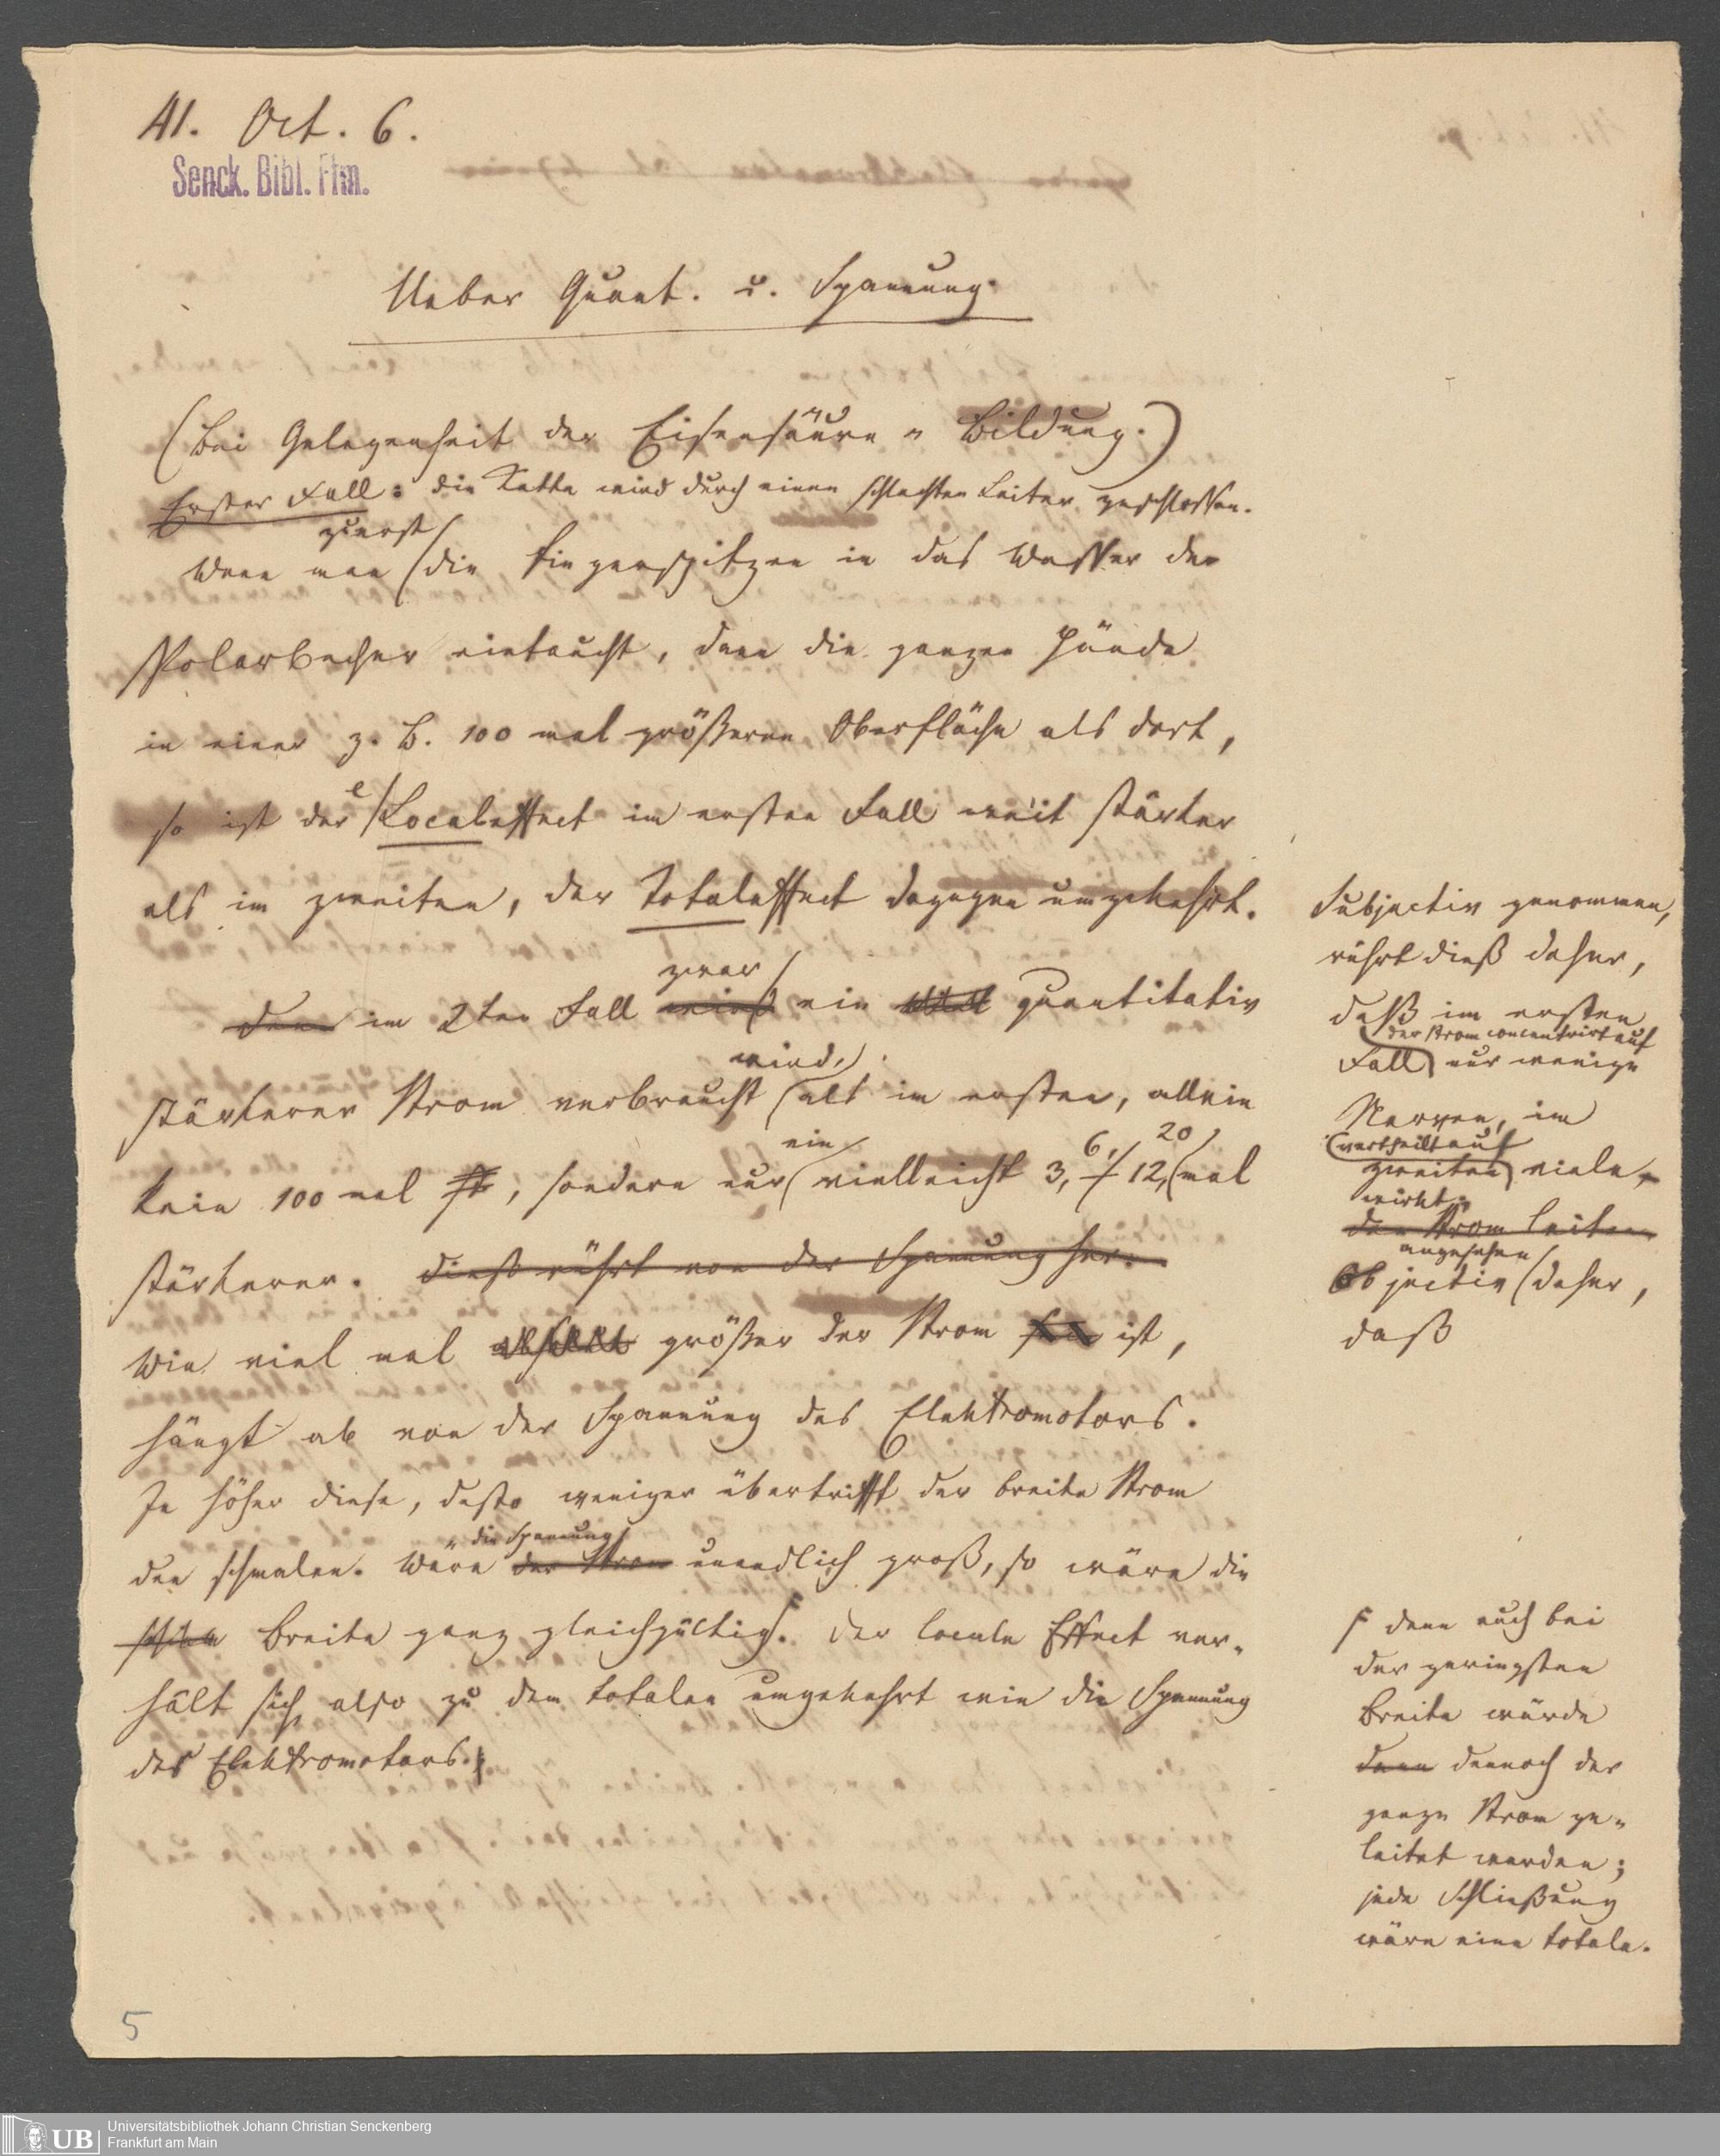 41. Oct. 6.
Senck. Bibl. Ffm.
Ueber Quant. u. Spannung.
(Bei Gelegenheit der Eisensäure-Bildung.)
Erster Fall: die Kette wird durch einen schlechten Leiter geschlossen.
zuerst
Wenn man die Fingerspitzen in das Wasser der
Polarbecher eintaucht, dann die ganzen Hände
in einer z. B. 100 mal größeren Oberfläche als dort,
so ist der Localeffect im ersten Fall weit stärker
als im zweiten, der Totaleffect dagegen umgekehrt.
zwar
Denn im 2ten Fall wird ein quantitativ
wird,
stärkerer Strom verbraucht als im ersten, allein
ein 6, 20
kein 100 mal st, sondern nur vielleicht 3, 12, mal
stärkerer. Dieß rührt von der Spannung her.
Wie viel mal größer der Strom ist,
hängt ab von der Spannung des Elektromotors.
Je höher diese, desto weniger übertrifft der breite Strom
die Spannung
den schmalen. Wäre der Strom unendlich groß, so wäre die
Breite ganz gleichgültig. Der locale Effect ver-
hält sich also zu dem totalen umgekehrt wie die Spannung
des Elektromotors.
Subjectiv genommen,
rührt dieß daher,
daß im ersten
der Strom concentrirt auf
Fall nur wenige
Nerven, im
vertheilt auf
zweiten viele,
wirkt;
den Strom leiten
angesehen
Objectiv daher,
daß
F denn auch bei
der geringsten
Breite würde
dann dennoch der
ganze Strom ge-
leitet werden;
jede Schließung
wäre eine totale.
5
UB
Universitätsbibliothek Johann Christian Senckenberg
Frankfurt am Main